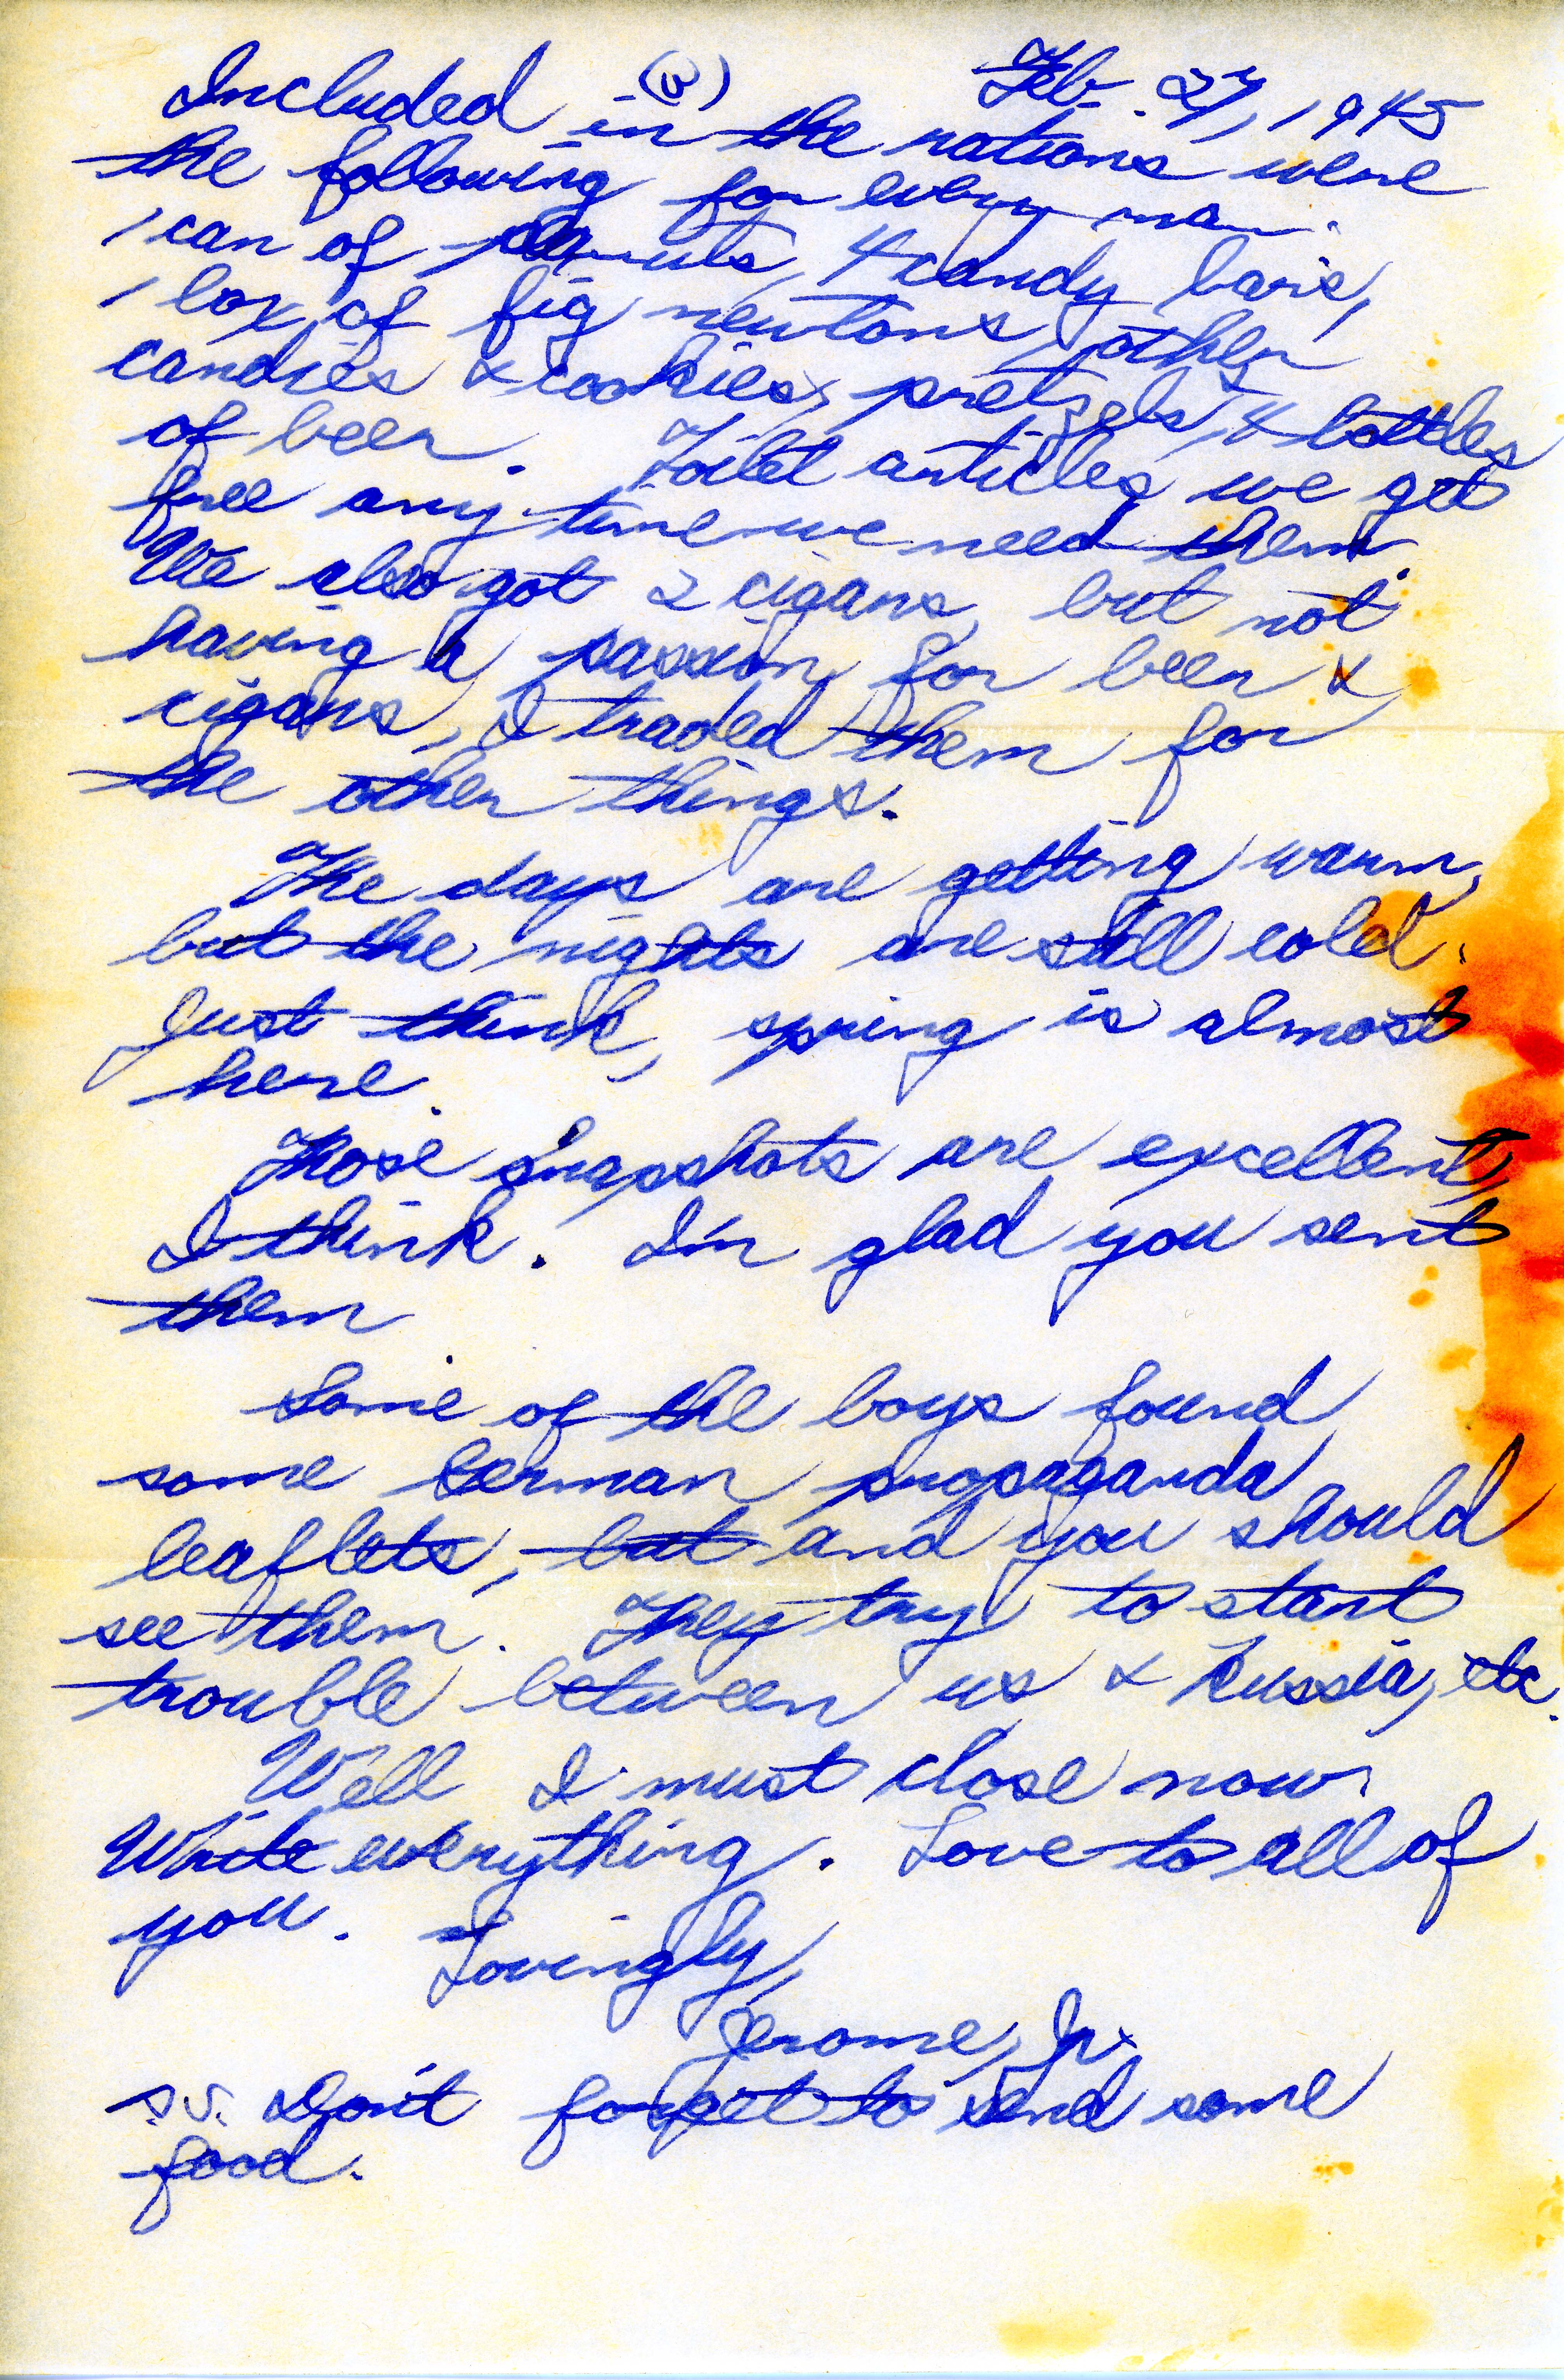 (3) Feb. 27, 1945
Included in the rations were
the following for every man.
1 can of peanuts, 4 candy bars,
1 box of fig newtons, other
candies & cookies, pretzels, 4 bottles
of beer. Toilet articles we get
free any time we need them.
We also got 2 cigars, but not
having a passion for beer &
cigars, I traded them for
the other things.
The days are getting warm,
but the nights are still cold.
Just think, spring is almost
here.
Those snapshots are excellent,
I think. I'm glad you sent
them
Some of the boys found
some German propaganda
leaflets, but and you should
see them. They try to start
trouble between us & Russia, etc.
Well I must close now.
Write everything. Love to all of
you.
Lovingly,
Jerome, Jr.
Don't forget to send some
food.